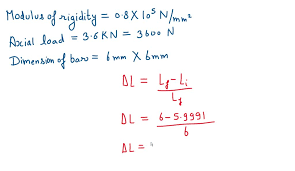 Modulus of rigidity = 0.8 X 10⁵ N/mm²
Axial load = 3.6 KN = 3600 N
Dimension of bar = 6mm X 6mm
ΔL = (Lf - Li) / Lf
ΔL = (6 - 5.9991) / 6
ΔL =